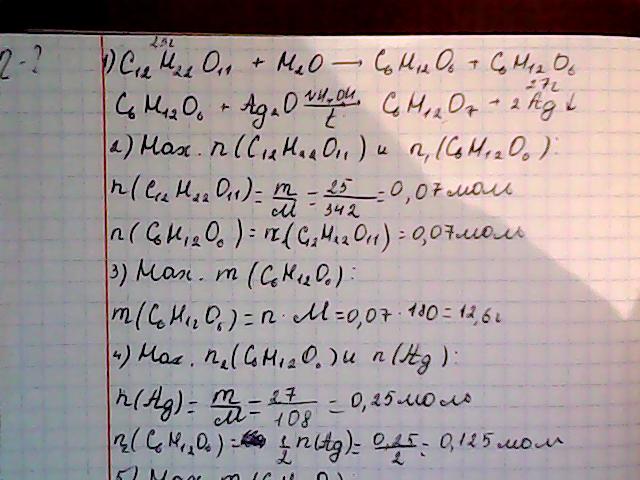 η-?
25г
1) C₁₂H₂₂O₁₁ + H₂O → C₆H₁₂O₆ + C₆H₁₂O₆
27г
C₆H₁₂O₆ + Ag₂O NH₄OH/t C₆H₁₂O₇ + 2Ag↓
2) Нах. n(C₁₂H₂₂O₁₁) и n₁(C₆H₁₂O₆):
n(C₁₂H₂₂O₁₁) = m/M = 25/342 = 0,07 моль
n(C₆H₁₂O₆) = n(C₁₂H₂₂O₁₁) = 0,07 моль
3) Нах. m(C₆H₁₂O₆):
m(C₆H₁₂O₆) = n · M = 0,07 · 180 = 12,6г
4) Нах. n₂(C₆H₁₂O₆) и n(Ag):
n(Ag) = m/M = 27/108 = 0,25 моль
n₂(C₆H₁₂O₆) = 1/2 n(Ag) = 0,25/2 = 0,125 моль
5) Нах. m(C₆H